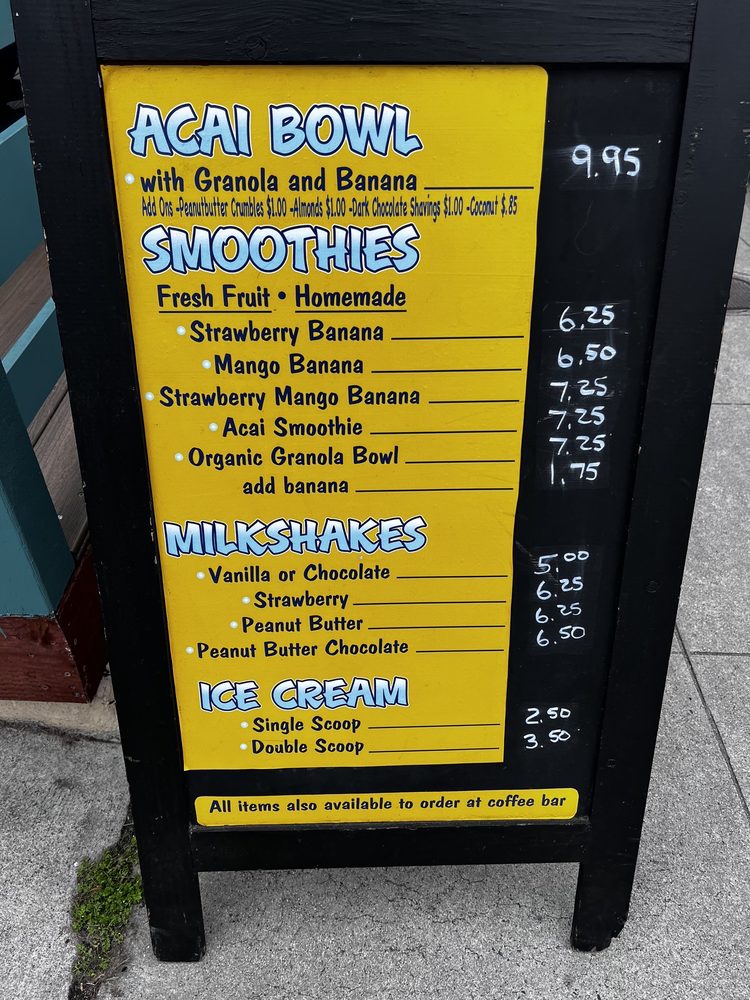 ACAI BOWL
with Granola and Banana 9.95
Add Ons -Peanutbutter Crumbles $1.00 -Almonds $1.00 -Dark Chocolate Shavings $1.00 -Coconut $.85
SMOOTHIES
Fresh Fruit • Homemade
Strawberry Banana 6.25
Mango Banana 6.50
Strawberry Mango Banana 7.25
Acai Smoothie 7.25
Organic Granola Bowl 7.25
add banana 1.75
MILKSHAKES
Vanilla or Chocolate 5.00
Strawberry 6.25
Peanut Butter 6.25
Peanut Butter Chocolate 6.50
ICE CREAM
Single Scoop 2.50
Double Scoop 3.50
All items also available to order at coffee bar